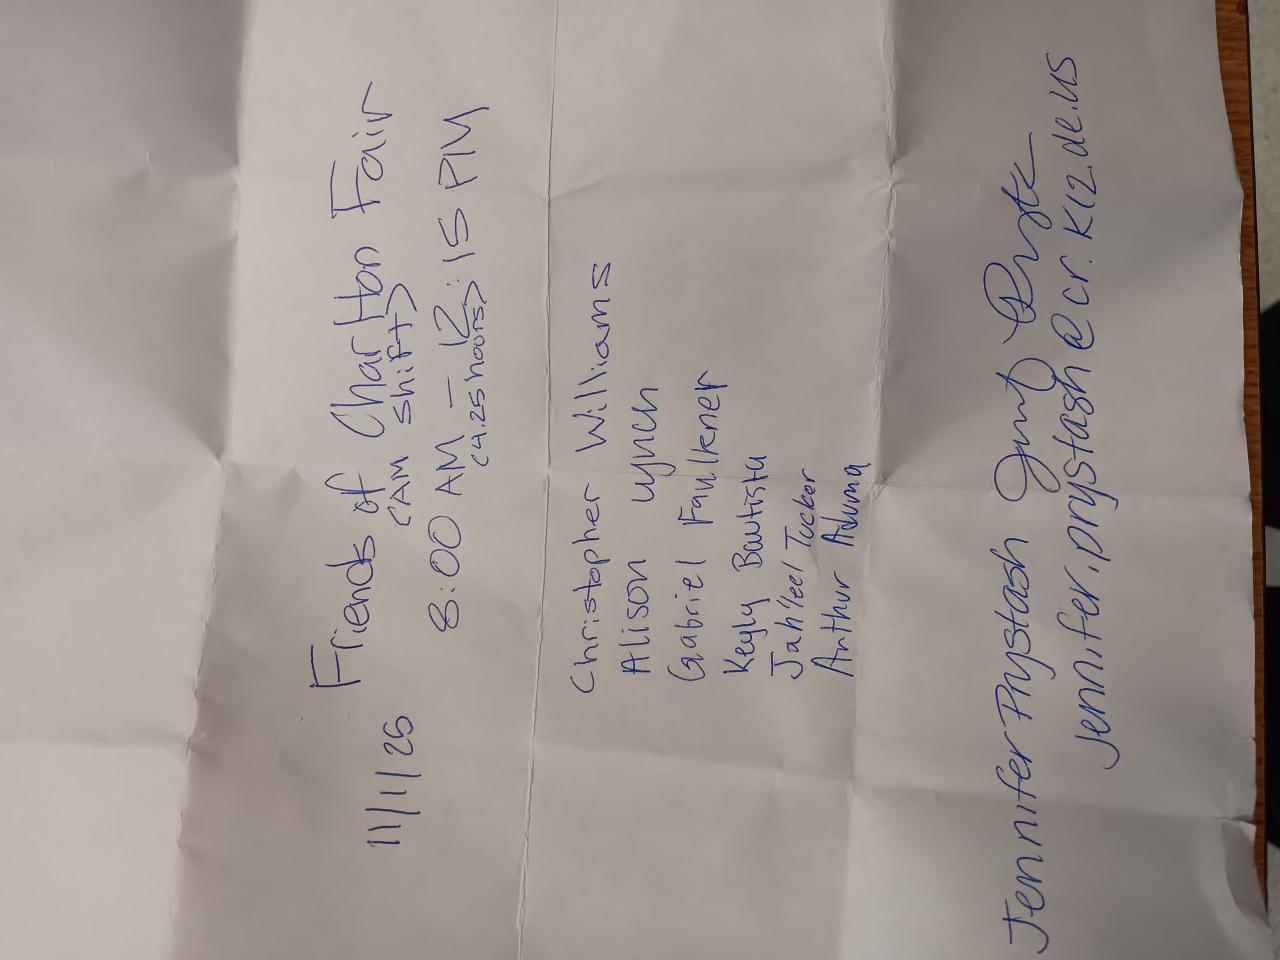 11/1/25 Friends of Charlton Fair
<AM shift>
8:00 AM - 12:15 PM
<4.25 hours>
Christopher Williams
Alison Lynch
Gabriel Faulkner
Keyly Bautista
Jahleel Tucker
Arthur Aduma
Jennifer Prystash
jennifer.prystash@cr.k12.de.us